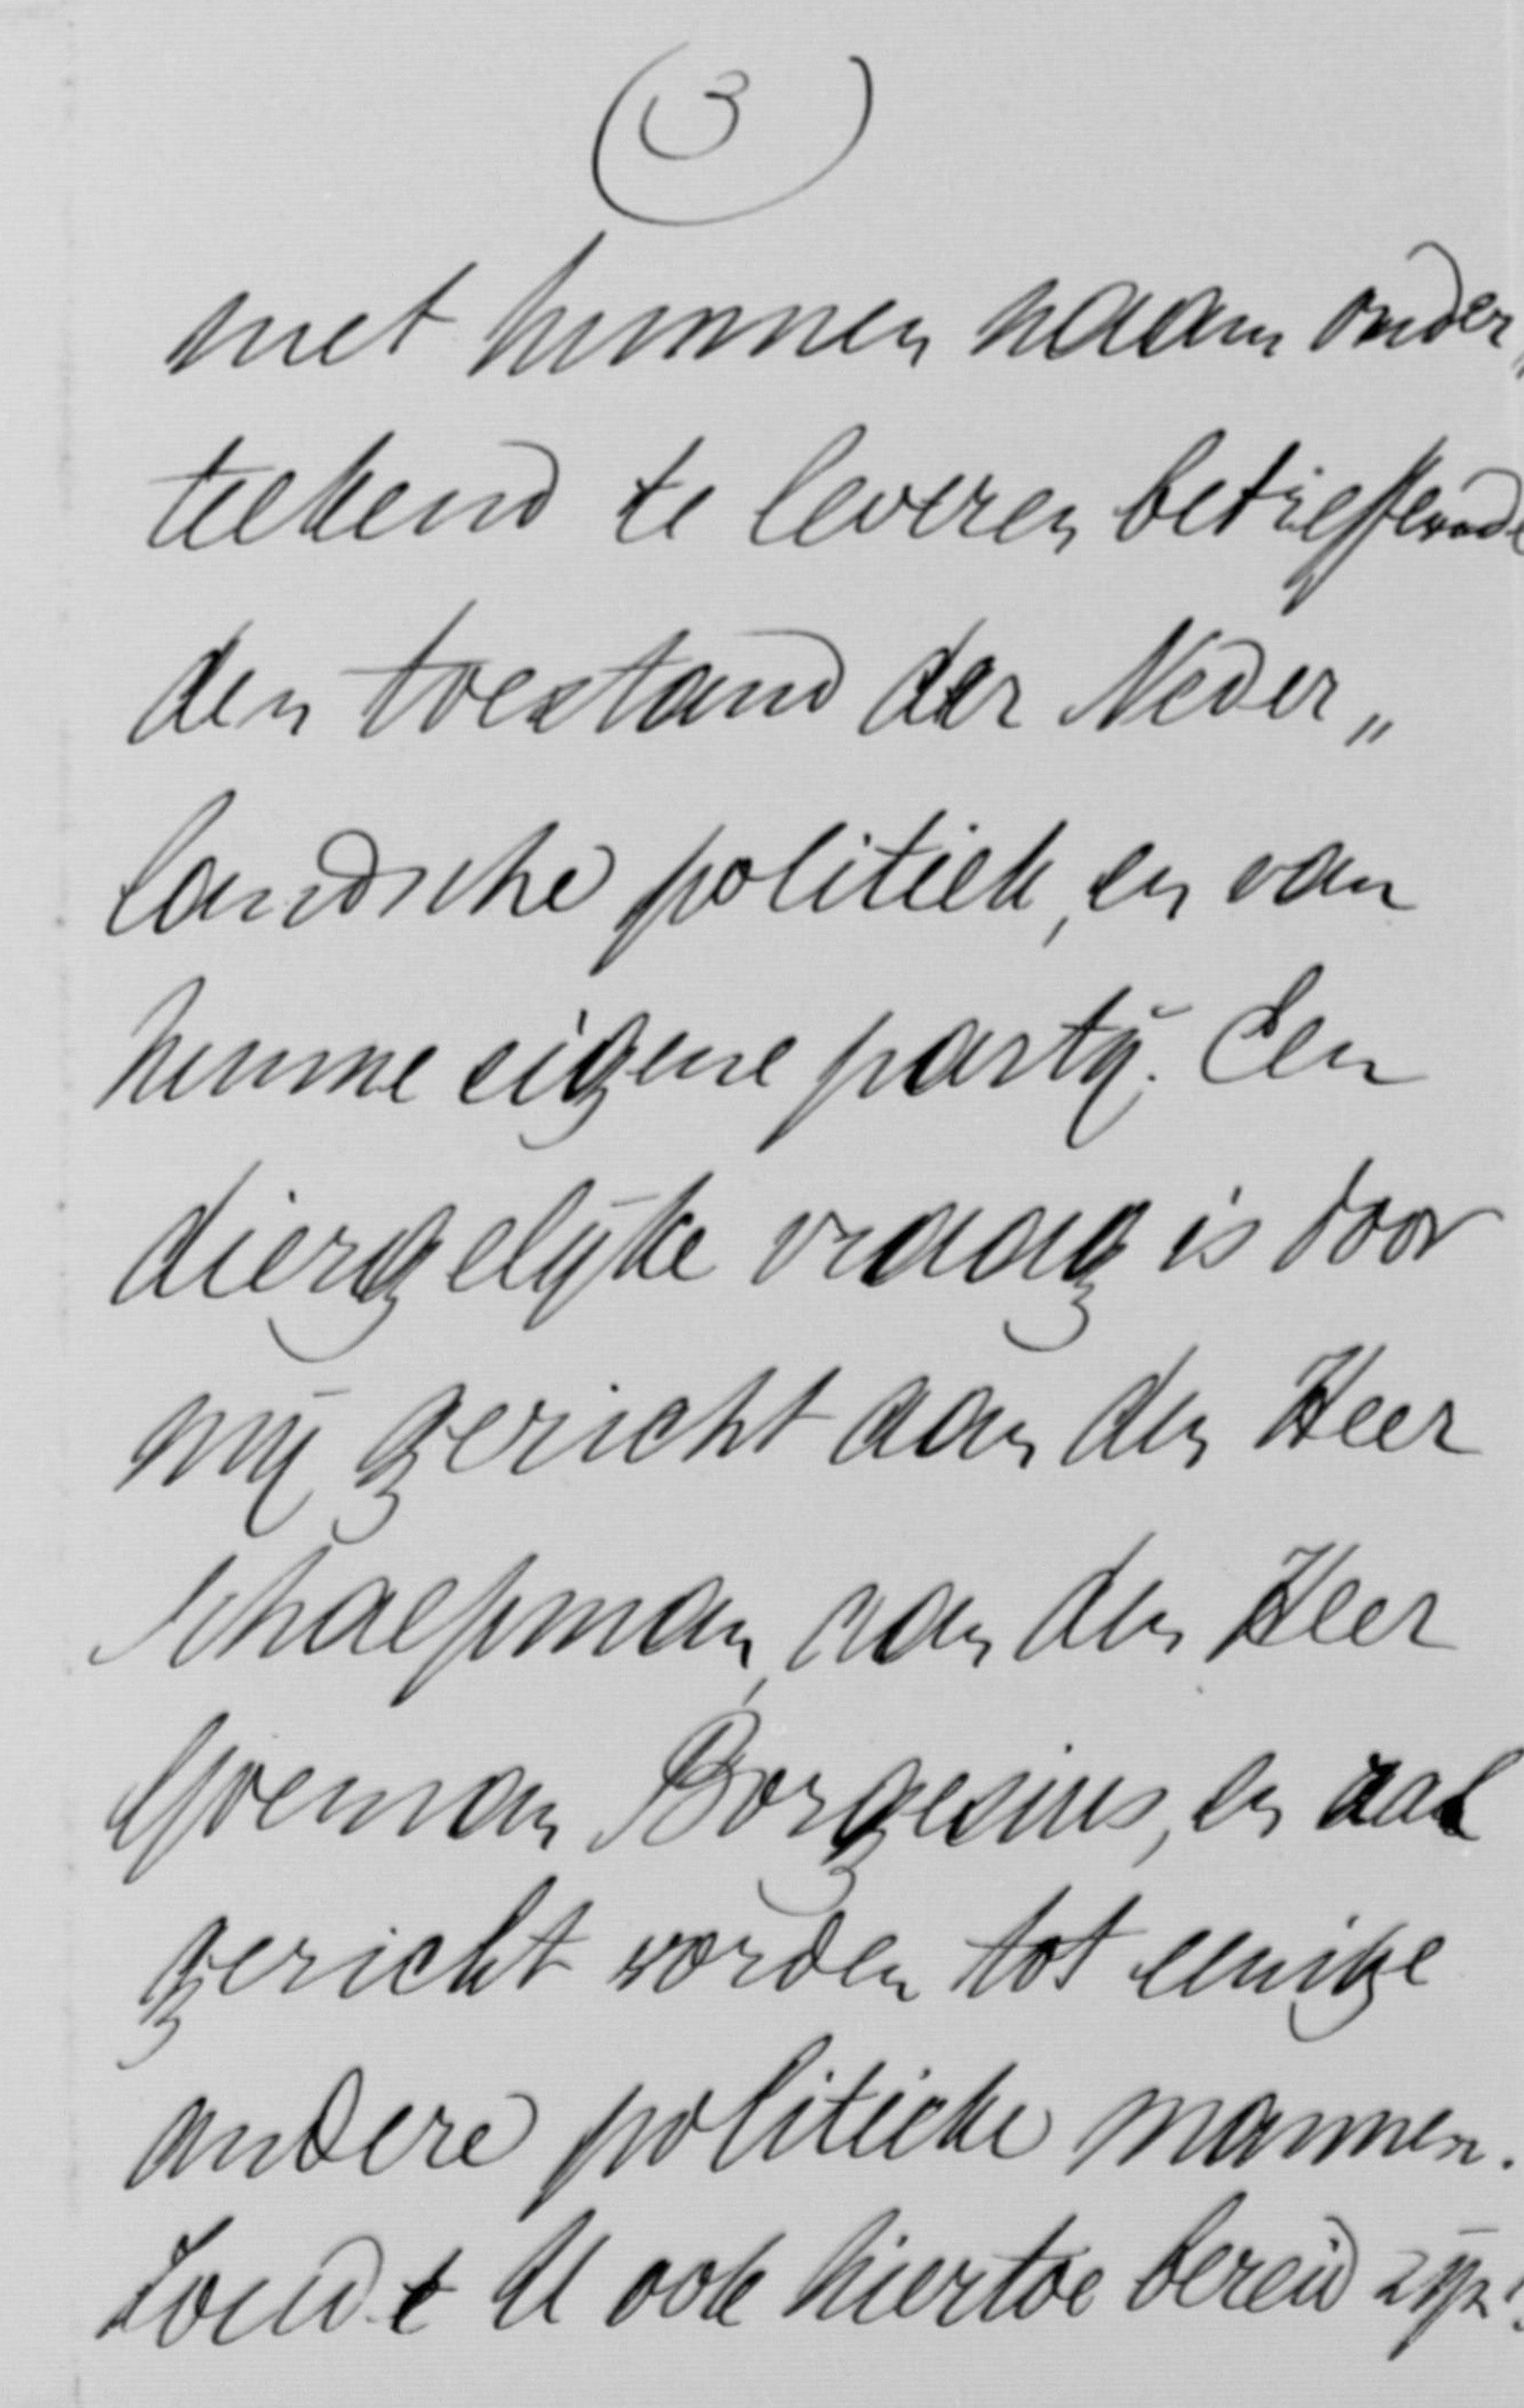 (3)
met hunnen naam onder„
teekend te leveren betreffende
den toestand der Neder„
landsche politiek, en van
hunne eigene partij. Een
diergelijke vraag is door
mij gericht aan den Heer
Schaepman, aan den Heer
Goeman Borgesius, en zal
gericht worden tot eenige
andere politieke mannen.
Zoudt U ook hiertoe bereid zijn?